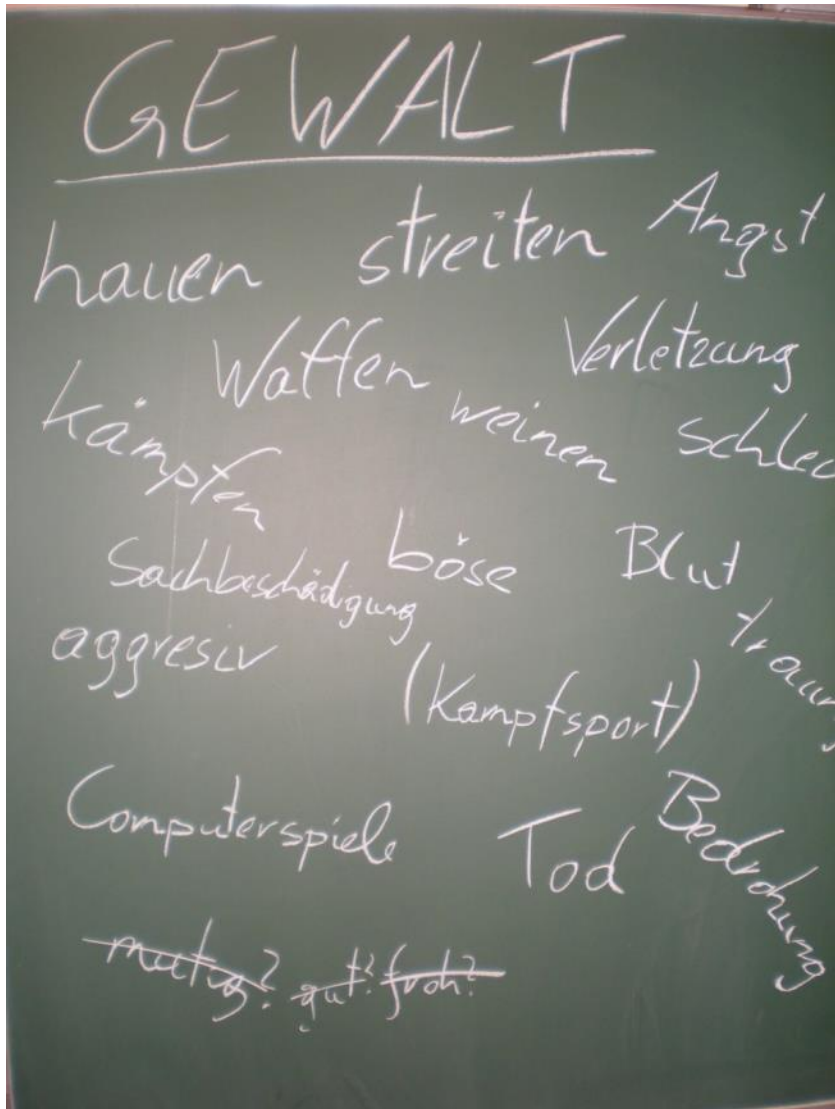 GEWALT
hauen streiten Angst
Waffen Verletzung
kämpfen weinen schlec
Sachbeschädigung böse Blut
aggresiv (Kampfsport) traurig
Computerspiele Tod Bedrohung
mutig? gut? froh?